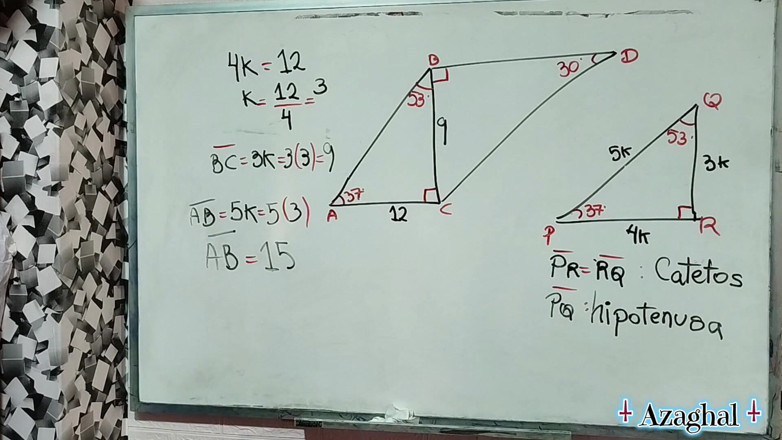 4K = 12
K = 12/4 = 3
BC = 3K = 3(3) = 9
AB = 5K = 5(3)
AB = 15
B
53°
9
37°
A
12
C
30°
D
Q
53°
5K
3K
37°
P
4K
R
PR = RQ : Catetos
PQ : hipotenusa
Azaghal